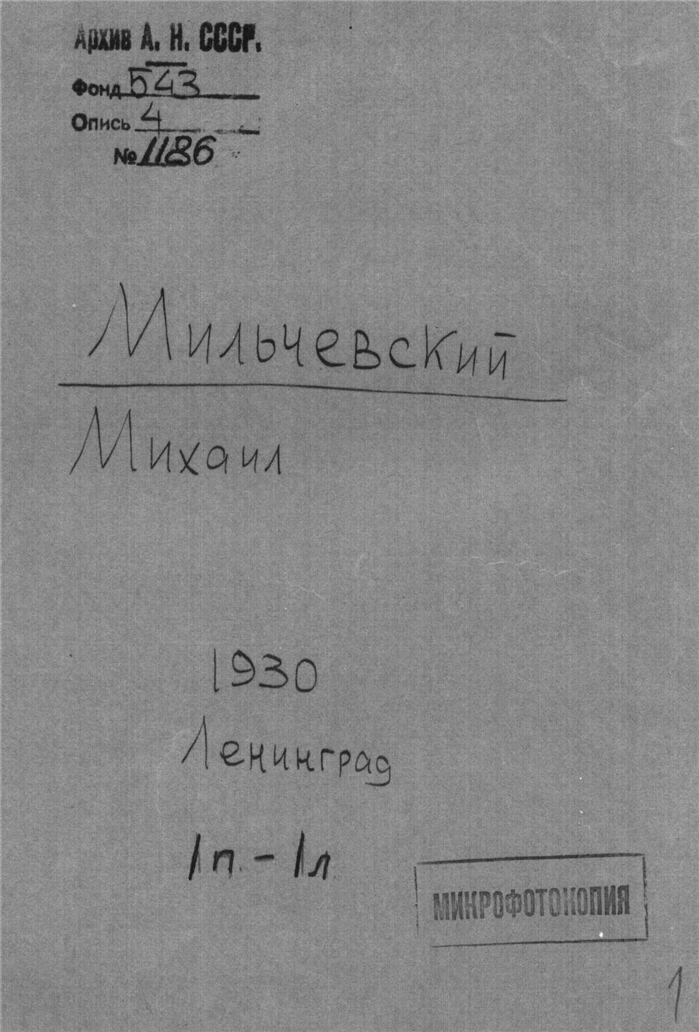 Архив А. Н. СССР.
Фонд 543
Опись 4
№ 1186
Мильчевский
Михаил
1930
Ленинград
1п. - 1л
МИКРОФОТОКОПИЯ
1